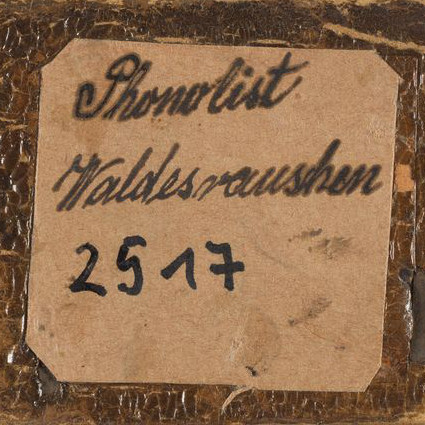 Phonolist
Waldesrauschen
2517